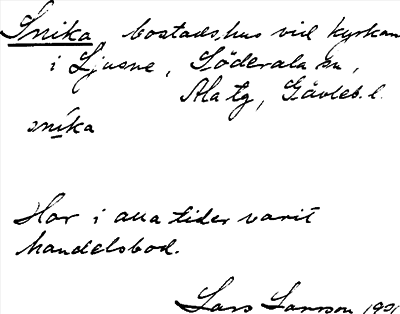 Snika bostadshus vid kyrkan
i Ljusne, Söderala sn,
Ala tg, Gävleb. l.
snika
Har i alla tider varit
handelsbod.
Lars Larsson 1901